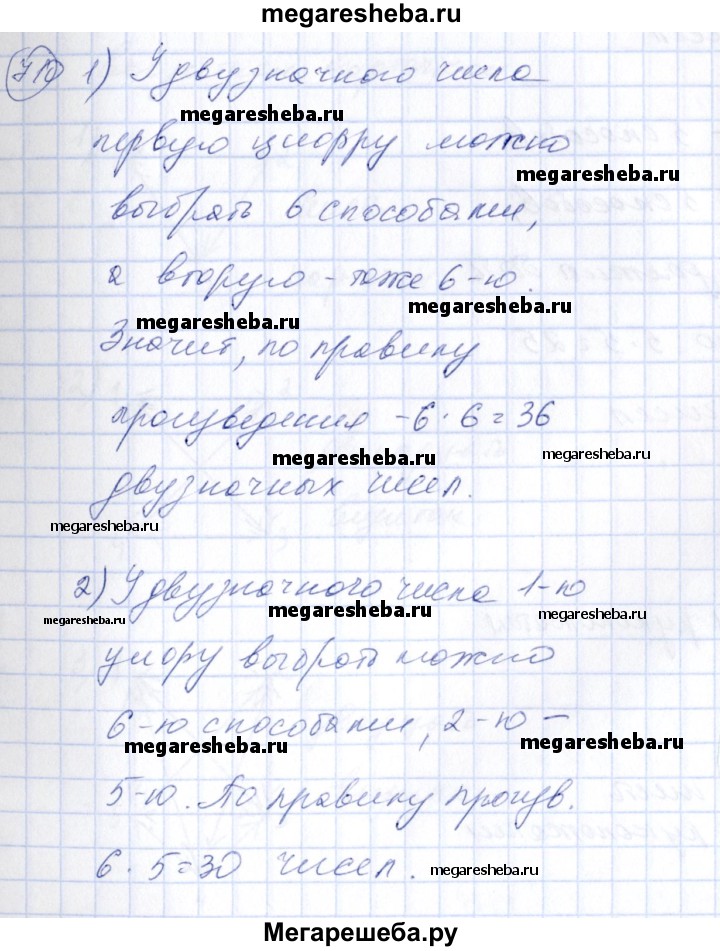 megaresheba.ru
710 1) У двузначного числа
megaresheba.ru
первую цифру можно
megaresheba.ru
выбрать 6 способами,
а вторую - тоже 6-ю.
megaresheba.ru
megaresheba.ru
Значит, по правилу
произведения - 6 · 6 = 36
megaresheba.ru
megaresheba.ru
двузначных чисел.
megaresheba.ru
2) У двузначного числа 1-ю
megaresheba.ru
megaresheba.ru
megaresheba.ru
цифру выбрать можно
6-ю способами, 2-ю -
megaresheba.ru
megaresheba.ru
5-ю. По правилу произв.
6 · 5 = 30 чисел.
megaresheba.ru
Мегарешеба.ру